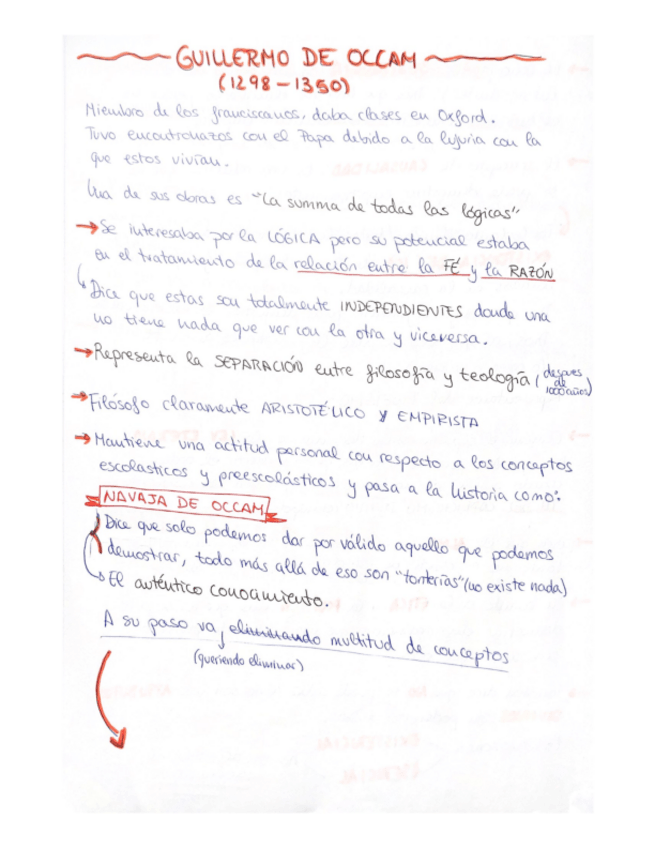 GUILLERMO DE OCCAM
(1298-1350)
Miembro de los franciscanos, daba clases en Oxford.
Tuvo encontronazos con el Papa debido a la lujuria con la
que estos vivían.
Una de sus obras es "La summa de todas las lógicas"
→ Se interesaba por la LÓGICA pero su potencial estaba
en el tratamiento de la relación entre la FÉ y la RAZÓN
Dice que estas son totalmente INDEPENDIENTES donde una
no tiene nada que ver con la otra y viceversa.
→ Representa la SEPARACIÓN entre filosofía y teología (despues
de
1000 años)
→ Filósofo claramente ARISTOTÉLICO Y EMPIRISTA
→ Mantiene una actitud personal con respecto a los conceptos
escolasticos y preescolásticos y pasa a la historia como:
NAVAJA DE OCCAM
Dice que solo podemos dar por válido aquello que podemos
demostrar, todo más allá de eso son "tonterías" (no existe nada)
El auténtico conocimiento.
A su paso va, eliminando multitud de conceptos
(queriendo eliminar)